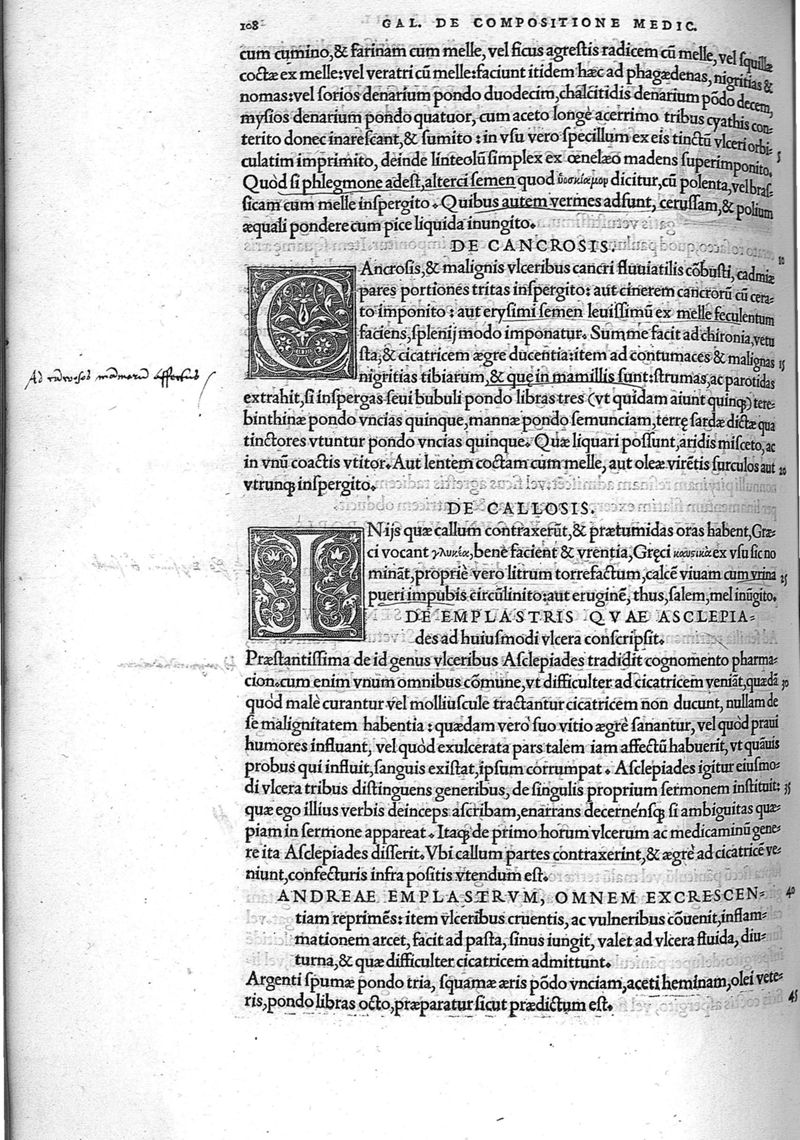 108 GAL. DE COMPOSITIONE MEDIC.
cum cumino,& farinam cum melle, vel ficus agrestis radicem cū melle, vel squillæ
coctæ ex melle: vel veratri cū melle: faciunt itidem hæc ad phagædenas, nigritias &
nomas: vel sorios denarium pondo duodecim, chalcitidis denarium pōdo decem,
mysios denarium pondo quatuor, cum aceto longè acerrimo tribus cyathis con-
terito donec inarescant, & sumito: in vsu vero specillum ex eis tinctū vlceri orbi- 5
culatim imprimito, deinde linteolū simplex ex œnelæo madens superimponito.
Quòd si phlegmone adest, alterci semen quod ὑοσκίαμον dicitur, cū polenta, vel bras-
sicam cum melle inspergito. Quibus autem vermes adsunt, cerussam, & polium
æquali pondere cum pice liquida inungito.
DE CANCROSIS. 10
CAncrosis, & malignis vlceribus cancri fluuiatilis cōbusti, cadmiæ
pares portiones tritas inspergito: aut cinerem cancrorū cū cera-
to imponito: aut erysimi semen leuissimū ex melle feculentum
faciens, splenij modo imponatur. Summe facit ad chironia, vetu
sta, & cicatricem ægre ducentia: item ad contumaces & malignas 15
nigritias tibiarum, & que in mamillis sunt: strumas, ac parotidas
extrahit, si inspergas seui bubuli pondo libras tres (vt quidam aiunt quinq;) tere-
binthinæ pondo vncias quinque, mannæ pondo semunciam, terrę sardæ dictæ qua
tinctores vtuntur pondo vncias quinque. Quæ liquari possunt, aridis misceto, ac
in vnū coactis vtitor. Aut lentem coctam cum melle, aut oleæ virētis surculos aut 20
vtrunq; inspergito.
DE CALLOSIS.
INijs quæ callum contraxerūt, & prætumidas oras habent, Græ-
ci vocant γλυκία, bene facient & vrentia, Gręci καυσικὰ ex vsu sic no
mināt, propriè vero litrum torrefactum, calcē viuam cum vrina 25
pueri impubis circūlinito: aut eruginē, thus, salem, mel inūgito.
DE EMPLASTRIS QVAE ASCLEPIA-
des ad huiusmodi vlcera conscripsit.
Præstantissima de id genus vlceribus Asclepiades tradidit cognomento pharma-
cion. cum enim vnum omnibus cōmune, vt difficulter ad cicatricem veniāt, quædā 30
quòd malè curantur vel molliuscule tractantur cicatricem non ducunt, nullam de
se malignitatem habentia: quædam vero suo vitio ægrè sanantur, vel quòd praui
humores influant, vel quòd exulcerata pars talem iam affectū habuerit, vt quāuis
probus qui influit, sanguis existat, ipsum corrumpat. Asclepiades igitur eiusmo-
di vlcera tribus distinguens generibus, de singulis proprium sermonem instituit: 35
quæ ego illius verbis deinceps ascribam, enarrans decernēnsq; si ambiguitas quæ-
piam in sermone appareat. Itaq; de primo horum vlcerum ac medicaminū gene-
re ita Asclepiades disserit. Vbi callum partes contraxerint, & ægrè ad cicatricē ve-
niunt, confecturis infra positis vtendum est.
ANDREAE EMPLASTRVM, OMNEM EXCRESCEN- 40
tiam reprimēs: item vlceribus cruentis, ac vulneribus cōuenit, inflam-
mationem arcet, facit ad pasta, sinus iungit, valet ad vlcera fluida, diu-
turna, & quæ difficulter cicatricem admittunt.
Argenti spumæ pondo tria, squamæ æris pōdo vnciam, aceti heminam, olei vete-
ris, pondo libras octo, præparatur sicut prædictum est. 45